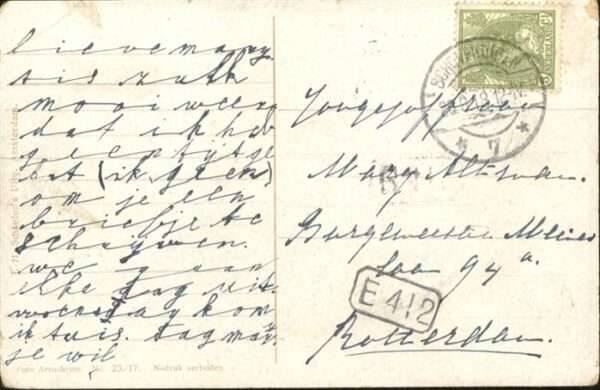 lieve mary
t is zulk
mooi weer
dat ik ha
geen tijt ge
(ik geen)
om je een
briefje te
schrijven.
we gaan
elke dag uit.
woensdag kom
ik tuis. dag ma
je wil
Jongejuffrouw
Mary Altsvan.
Burgemeester Meines
laan 94 a.
Rotterdam.
E 412
No. 23/17. Nadruk verboden.